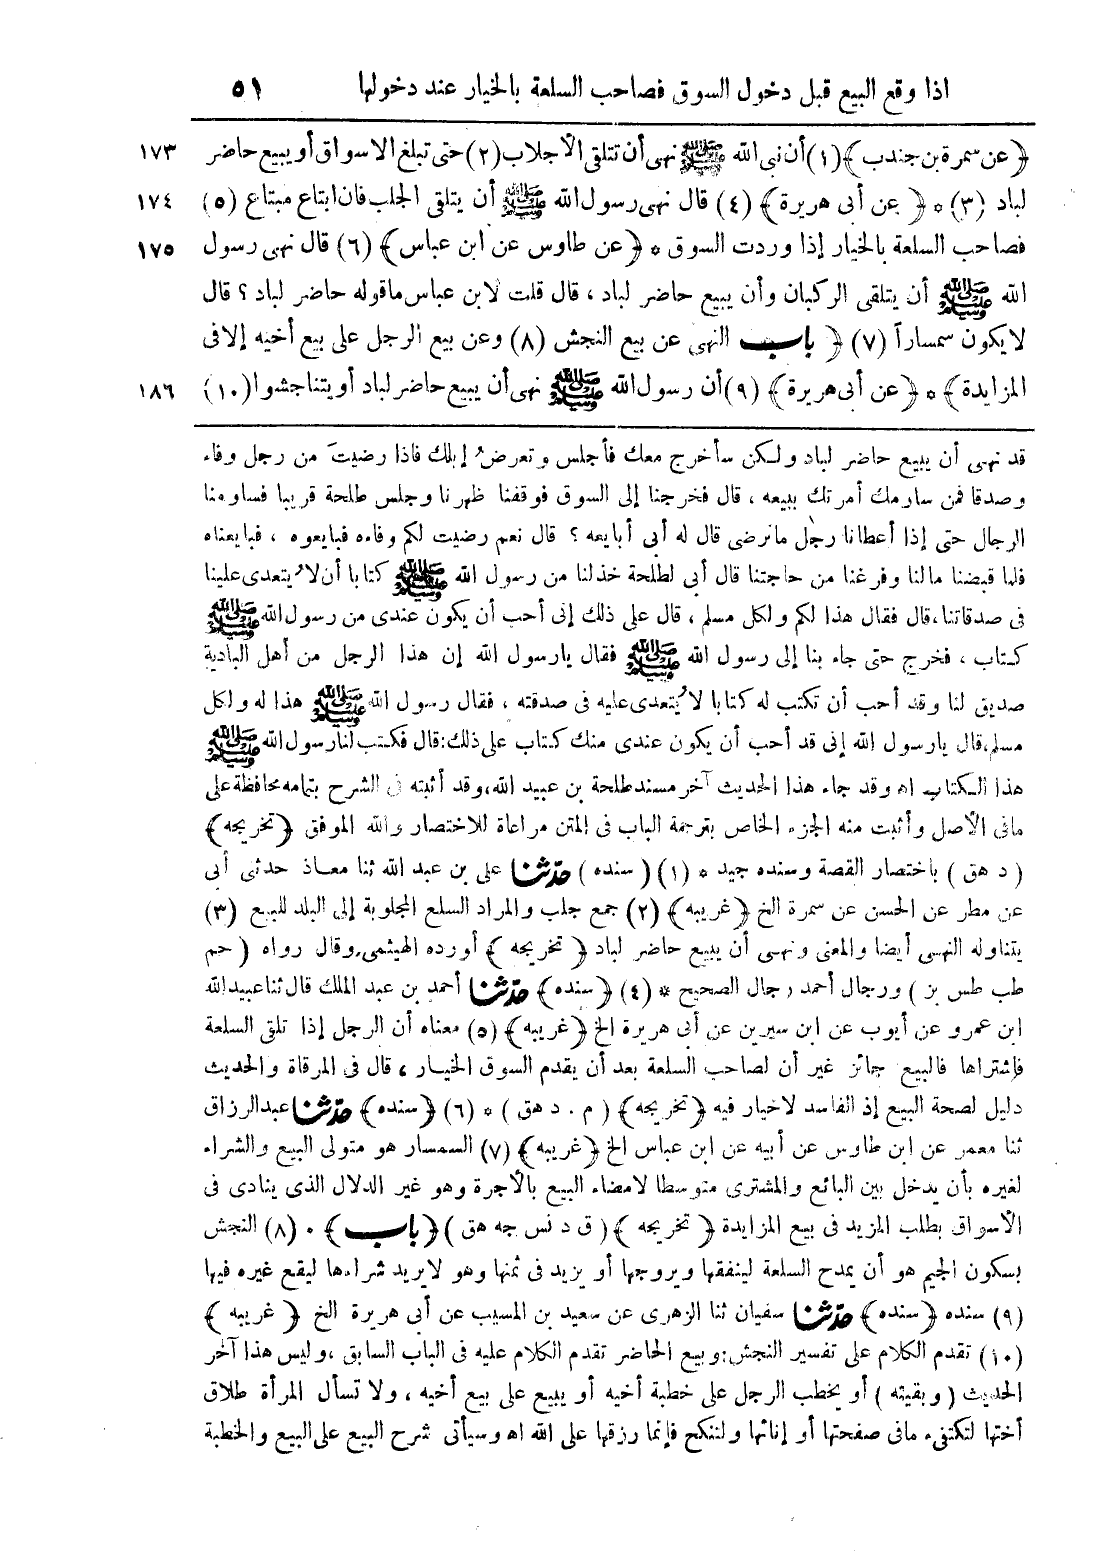 اذا وقع البيع قبل دخول السوق فصاحب السلعة بالخيار عند دخولها ٥١
﴿عن سمرة بن جندب﴾ (١) أن نبي الله ﷺ نهى أن تتلقى الأجلاب (٢) حتى تبلغ الاسواق أو يبيع حاضر ١٧٣
لباد (٣) * ﴿عن أبى هريرة﴾ (٤) قال نهى رسول الله ﷺ أن يتلقى الجلب فان ابتاع مبتاع (٥) ١٧٤
فصاحب السلعة بالخيار إذا وردت السوق * ﴿عن طاوس عن ابن عباس﴾ (٦) قال نهى رسول ١٧٥
الله ﷺ أن يتلقى الركبان وأن يبيع حاضر لباد ، قال قلت لابن عباس ماقوله حاضر لباد ؟ قال
لا يكون سمساراً (٧) ﴿ باب النهى عن بيع النجش (٨) وعن بيع الرجل على بيع أخيه إلا فى
المزايدة﴾ * ﴿عن أبى هريرة﴾ (٩) أن رسول الله ﷺ نهى أن يبيع حاضر لباد أو يتناجشوا (١٠) ١٨٦
قد نهى أن يبيع حاضر لباد ولكن سأخرج معك فأجلس وتعرضُ إبلك فاذا رضيتَ من رجل وفاء
وصدقا فمن سارمك أمرتك ببيعه ، قال فخرجنا إلى السوق فوقفنا ظهرنا وجلس طلحة قريبا فساومنا
الرجال حتى إذا أعطانا رجل مانرضى قال له أبى أبايعه ؟ قال نعم رضيت لكم وفاءه فبايعوه ، فبايعناه
فلما قبضنا مالنا وفرغنا من حاجتنا قال أبى لطلحة خذلنا من رسول الله ﷺ كتابا أن لا يُتعدى علينا
فى صدقاتنا،قال فقال هذا لكم ولكل مسلم ، قال على ذلك إنى أحب أن يكون عندى من رسول الله ﷺ
كتاب ، فخرج حتى جاء بنا إلى رسول الله ﷺ فقال يارسول الله إن هذا الرجل من أهل البادية
صديق لنا وقد أحب أن تكتب له كتابا لا يُتعدى عليه فى صدقته ، فقال رسول الله ﷺ هذا له ولكل
مسلم،قال يارسول الله إنى قد أحب أن يكون عندى منك كتاب على ذلك:قال فكتب لنارسول الله ﷺ
هذا الكتاب اه وقد جاء هذا الحديث آخر مسند طلحة بن عبيد الله،وقد أثبته فى الشرح بتمامه محافظة على
مافى الأصل وأثبت منه الجزء الخاص بترجمة الباب فى المتن مراعاة للاختصار والله الموفق ﴿تخريجه﴾
( د هق ) باختصار القصة وسنده جيد * (١) ( سنده ) حدّثنا على بن عبد الله ثنا معاذ حدثنى أبى
عن مطر عن الحسن عن سمرة الخ ﴿غريبه﴾ (٢) جمع جلب والمراد السلع المجلوبة إلى البلد للبيع (٣)
يتناوله النهى أيضا والمعنى ونهى أن يبيع حاضر لباد ﴿تخريجه﴾ أورده الهيثمى,وقال رواه ( حم
طب طس بز ) ورجال أحمد رجال الصحيح * (٤) ﴿سنده﴾ حدّثنا أحمد بن عبد الملك قال ثنا عبيد الله
ابن عمرو عن أيوب عن ابن سيرين عن أبى هريرة الخ ﴿غريبه﴾ (٥) معناه أن الرجل إذا تلقى السلعة
فإشتراها فالبيع جائز غير أن لصاحب السلعة بعد أن يقدم السوق الخيار ، قال فى المرقاة والحديث
دليل لصحة البيع إذ الفاسد لاخيار فيه ﴿تخريجه﴾ ( م . د هق ) * (٦) ﴿سنده﴾ حدّثنا عبد الرزاق
ثنا معمر عن ابن طاوس عن أبيه عن ابن عباس الخ ﴿غريبه﴾ (٧) السمسار هو متولى البيع والشراء
لغيره بأن يدخل بين البائع والمشترى متوسطا لامضاء البيع بالأجرة وهو غير الدلال الذى ينادى فى
الأسواق بطلب المزيد فى بيع المزايدة ﴿تخريجه﴾ ( ق د نس جه هق ) ﴿باب﴾ * (٨) النجش
بسكون الجيم هو أن يمدح السلعة لينفقها ويروجها أو يزيد فى ثمنها وهو لايريد شراءها ليقع غيره فيها
(٩) سنده ﴿سنده﴾ حدّثنا سفيان ثنا الزهرى عن سعيد بن المسيب عن أبى هريرة الخ ﴿غريبه﴾
(١٠) تقدم الكلام على تفسير النجش:وبيع الحاضر تقدم الكلام عليه فى الباب السابق ،وليس هذا آخر
الحديث ( وبقيته ) أو يخطب الرجل على خطبة أخيه أو يبيع على بيع أخيه ، ولا تسأل المرأة طلاق
أختها لتكتفىء مافى صفحتها أو إنائها ولتنكح فإنما رزقها على الله اه وسيأتى شرح البيع على البيع والخطبة